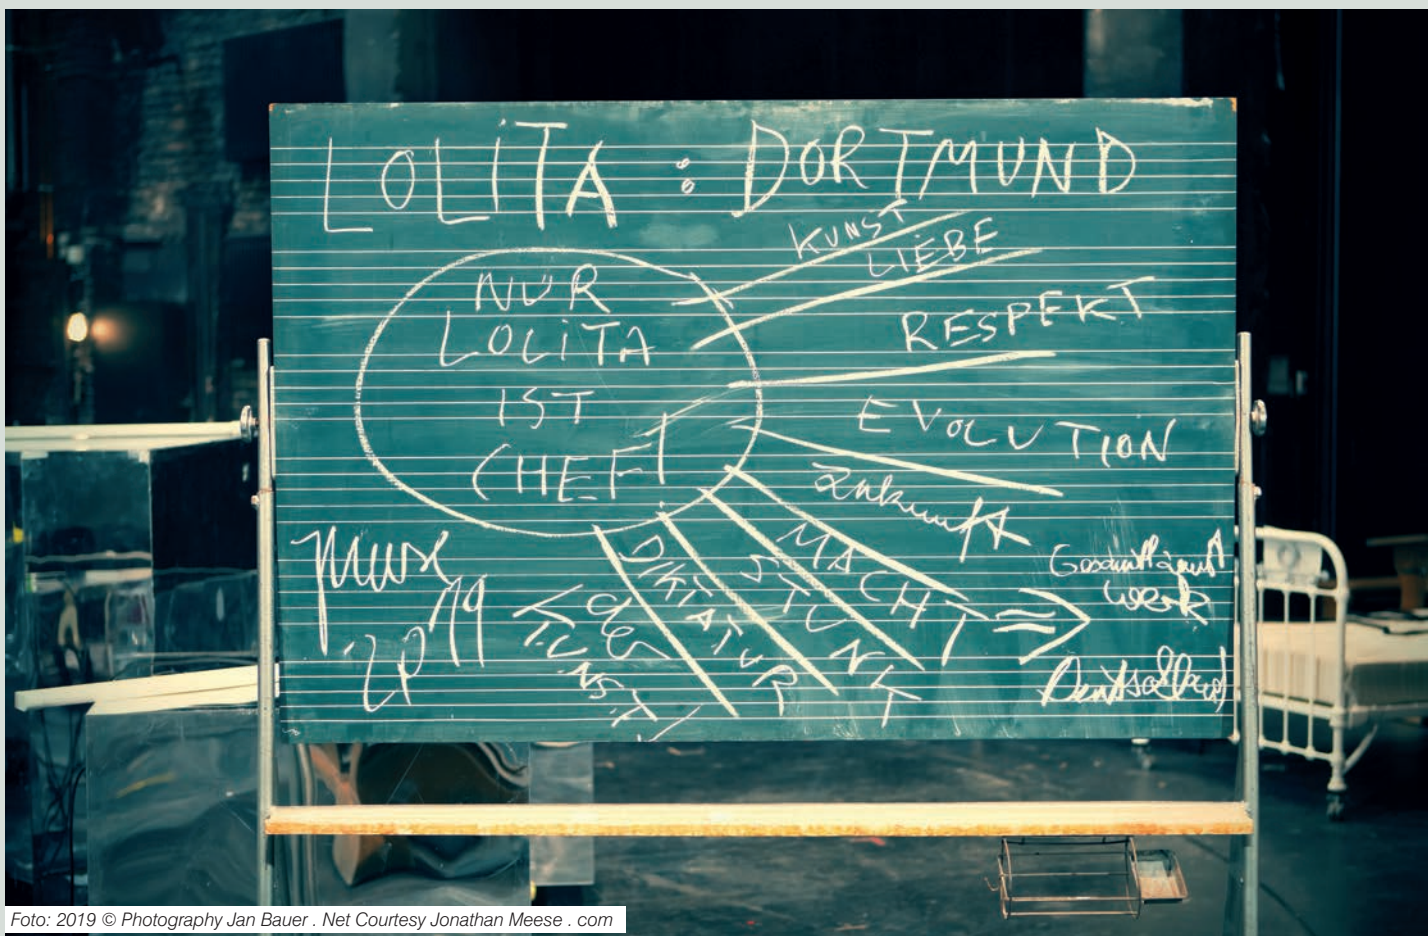 LOLiTA : DORTMUND
NUR
LOLiTA
IST
CHEF!
KUNST
LIEBE
RESPEKT
EVOLUTION
Zukunft
MACHT
STUNKT
DIKTATUR
der
KUNST
=>
Gesamtkunst
werk
Deutschland
Foto: 2019 © Photography Jan Bauer . Net Courtesy Jonathan Meese . com